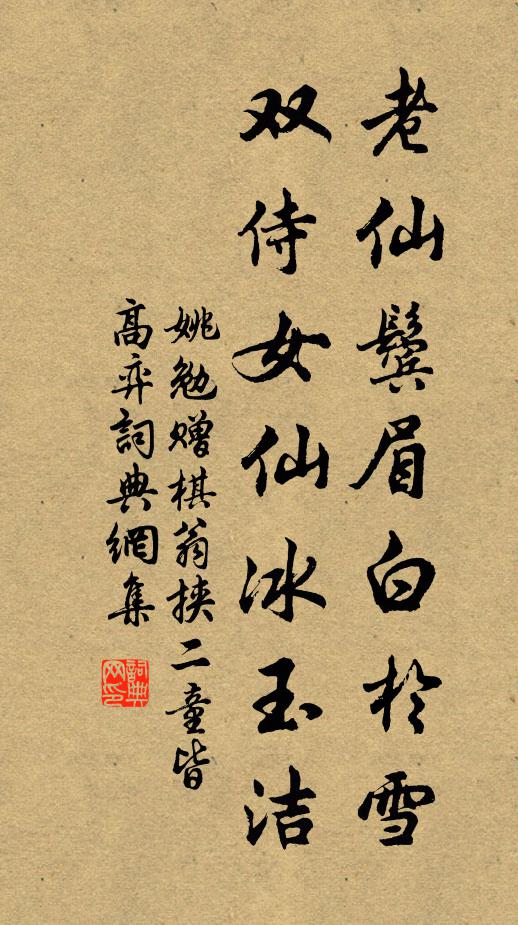 老仙鬓眉白於雪
双侍女仙冰玉洁
姚勉赠棋翁挟二童皆
高弈詞典網集
詞典
网印